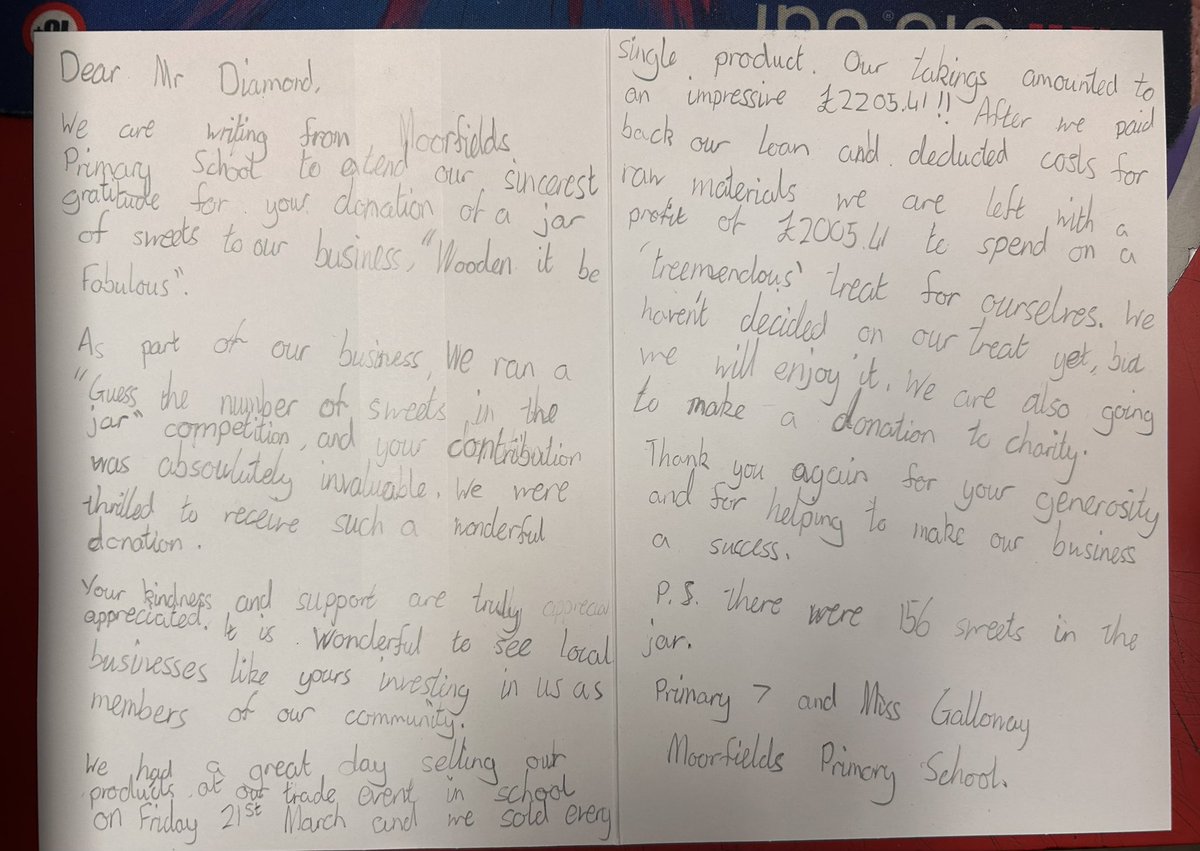 Dear Mr Diamond,
We are writing from Moorfields
Primary School to extend our sincerest
gratitude for your donation of a jar
of sweets to our business, "Wooden it be
Fabulous".
As part of our business, we ran a
"Guess the number of sweets in the
jar" competition, and your contribution
was absoulutely invaluable. We were
thrilled to receive such a wonderful
donation.
Your kindness and support are truly apprecia
appreciated. It is wonderful to see local
businesses like yours investing in us as
members of our community.
We had a great day selling our
products at our trade event in school
on Friday 21st March and we sold every
single product. Our takings amounted to
an impressive £2205.41!! After we paid
back our loan and deducted costs for
raw materials we are left with a
profit of £2005.41 to spend on a
'treemendous' treat for ourselves. We
haven't decided on our treat yet, but
we will enjoy it. We are also going
to make a donation to charity.
Thank you again for your generosity
and for helping to make our business
a success.
P.S. there were 156 sweets in the
jar.
Primary 7 and Miss Galloway
Moorfields Primary School.